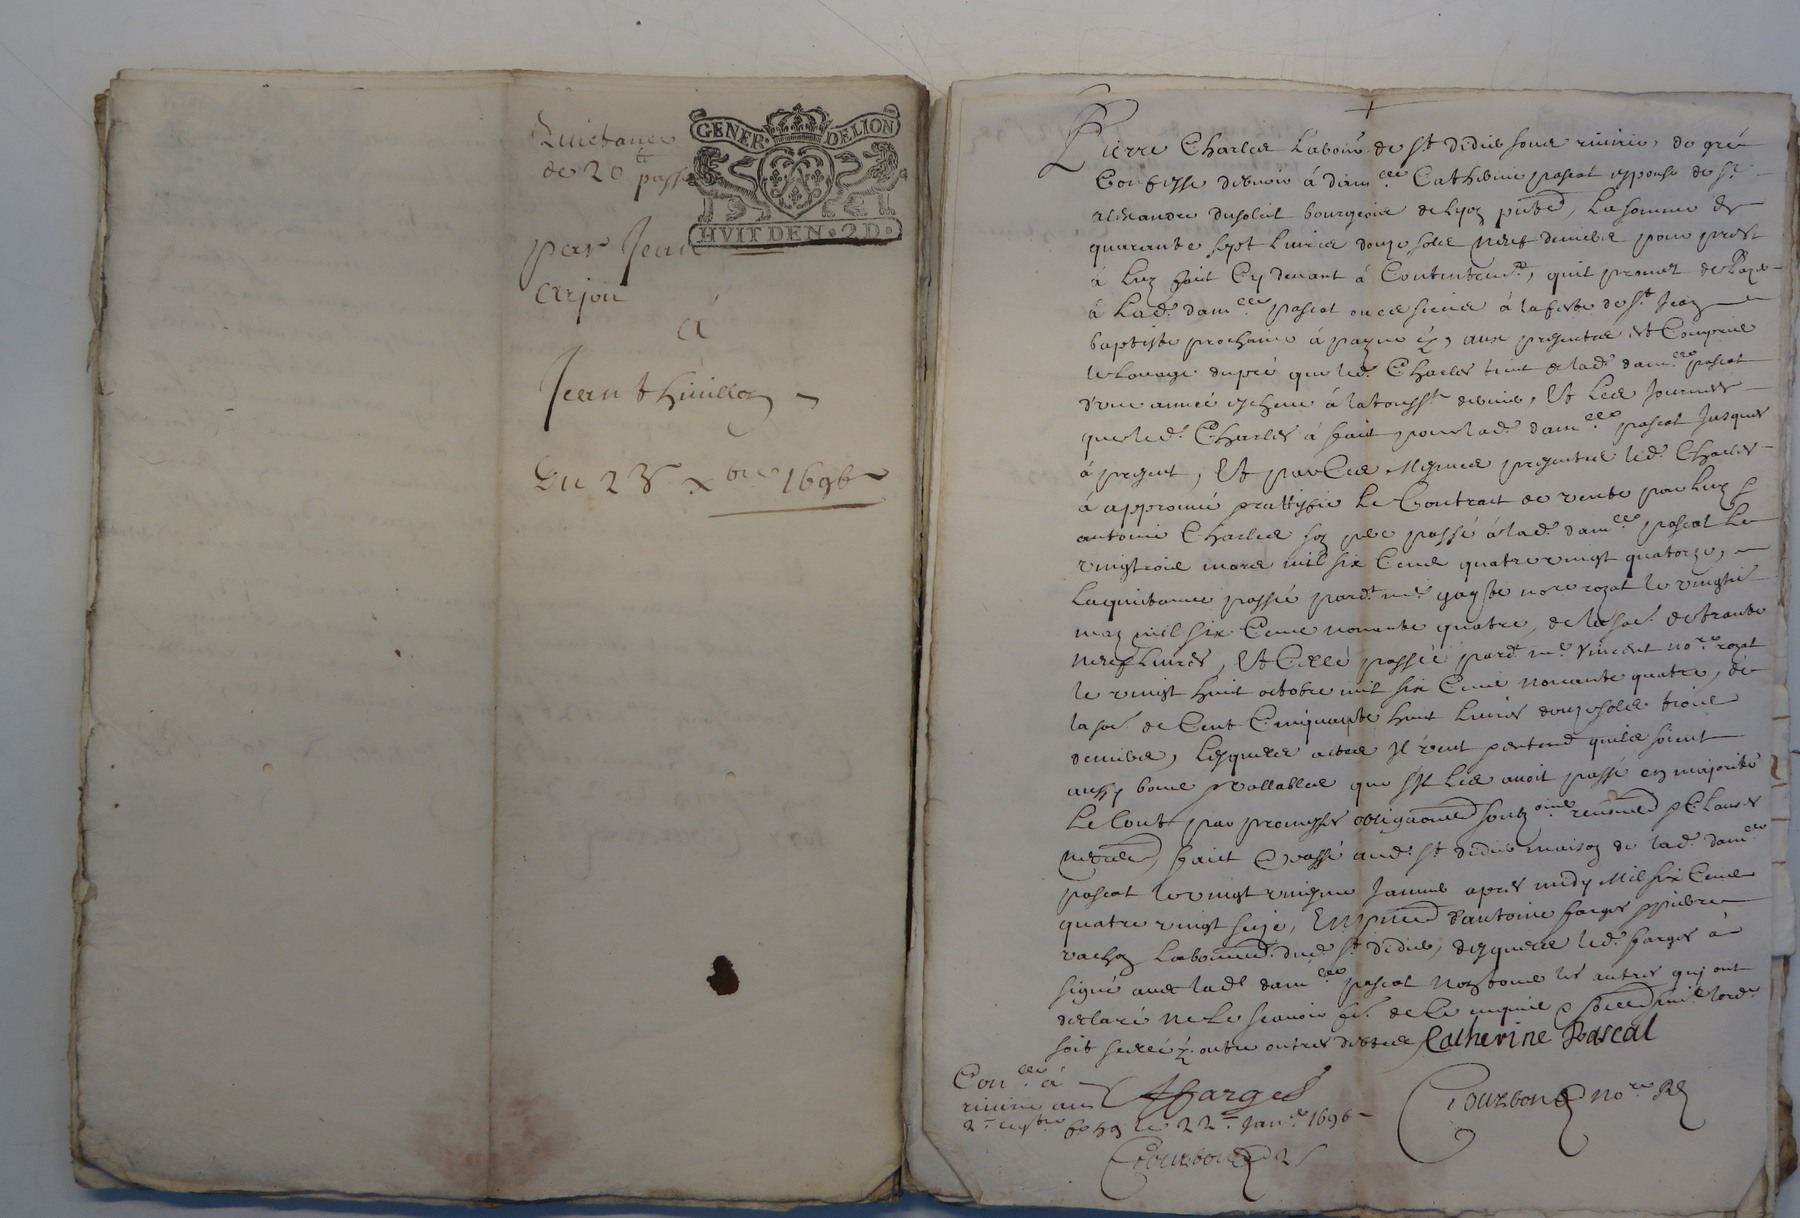 Quictance
de 20 ₶ passé
GENER. DE LION
HVIT DEN. 2 D.
par Jean
Arjou
à
Jean thivillon
Du 23 xbre 1696
Pierre Charles Labour de st didier soue rivirie, de gré
Confesse debvoir à damlle Catherine pascal espouse de sr
alexandre dusoleil bourgeois de Lyon pnte, La somme de
quarante sept Livres douze sols neuf deniers pour prest
à Luy fait Cy devant à Contentemt, quil promet de Paye
à Lad. damlle pascal ou es siens à la feste de st Jean
baptiste prochaine à payne &c, aux presentes est Comprise
le Louage du pré que led. Charles tient de lad. damlle pascal
d'une année escheue à la toussts derniere, Et Les Journées
que led. Charles à fait pour lad. damlle pascal Jusques
à present, Et par Ces Mesmes presentes led. Charles
à approuvé & rattiffié Le Contrat de vente par Luy &
antoine Charles son pere passé à lad. damlle pascal Le
vingt mars mil six Cens quatre vingt quatorze,
La quittance passée pardt me nore royal le vingtie
may mil six Cens nonante quatre, de la soe. de trante
neuf Livres, Et Celle passée pardt me Vincent nore royal
le vingt huit octobre mil six Cens nonante quatre, de
la soe. de Cent Cinquante huit Livres douze sols trois
deniers, Lesquels actes Il veut & entend quils soient
aussy bons & vallables que s'il Les avoit passé en majorité
Le tout par promesses obligaõns soubz & Clauses
necres, fait & passé aud. st didier maison de lad. damlle
pascal le vingt Janvier apres midy Mil six Cens
quatre vingt seize, En pnce d'antoine farges & pierre
vachon Laboureurs dud. st didier, desquels led. farges à
signé avec lad. damlle pascal Non tous les autres qui ont
declaré ne Le scavoir fe. de Ce enquis &
soit scellé Catherine Pascal
Conlle à
rivirie au
2e regtre fo 59 le 22e Janer 1696
AFarges
Courbon nore Rl
Courbon